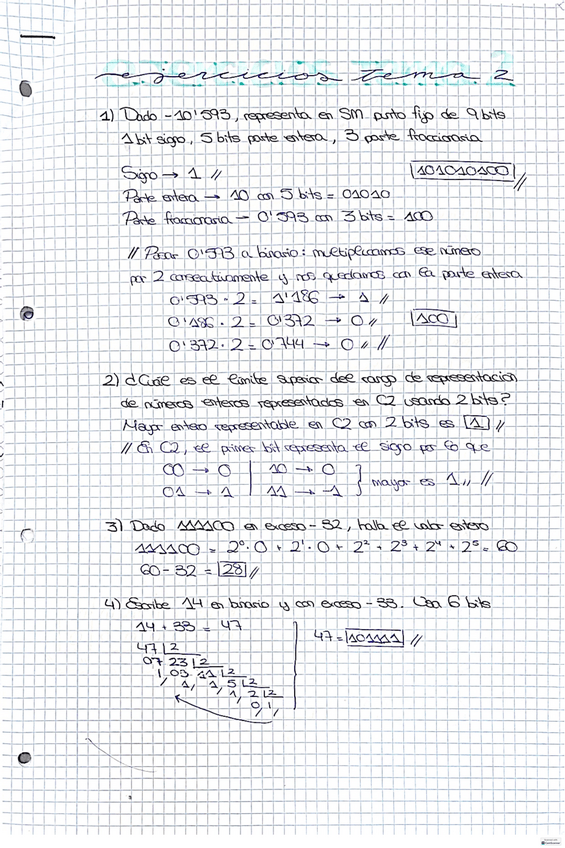 ejercicios tema 2
1) Dado -10'593, representa en SM punto fijo de 9 bits
1 bit signo, 5 bits parte entera, 3 parte fraccionaria
Signo → 1 //
101010100 //
Parte entera → 10 con 5 bits = 01010
Parte fraccionaria → 0'593 con 3 bits = 100
// Pasar 0'593 a binario: multiplicamos ese número
por 2 consecutivamente y nos quedamos con la parte entera
0'593 · 2 = 1'186 → 1 //
0'186 · 2 = 0'372 → 0 //
100
0'372 · 2 = 0'744 → 0 // //
2) ¿Cuál es el límite superior del rango de representación
de números enteros representados en C2 usando 2 bits?
Mayor entero representable en C2 con 2 bits es 1 //
// En C2, el primer bit representa el signo por lo que
00 → 0 | 10 → 0
01 → 1 | 11 → -1 } mayor es 1 // //
3) Dado 111100 en exceso-32, halla el valor entero
111100 = 2⁰·0 + 2¹·0 + 2² + 2³ + 2⁴ + 2⁵ = 60
60 - 32 = 28 //
4) Escribe 14 en binario y con exceso-33. Usa 6 bits
14 + 33 = 47
47 = 101111 //
47 |2
07 23 |2
1 03 11 |2
1 1 5 |2
1 2 |2
0 1